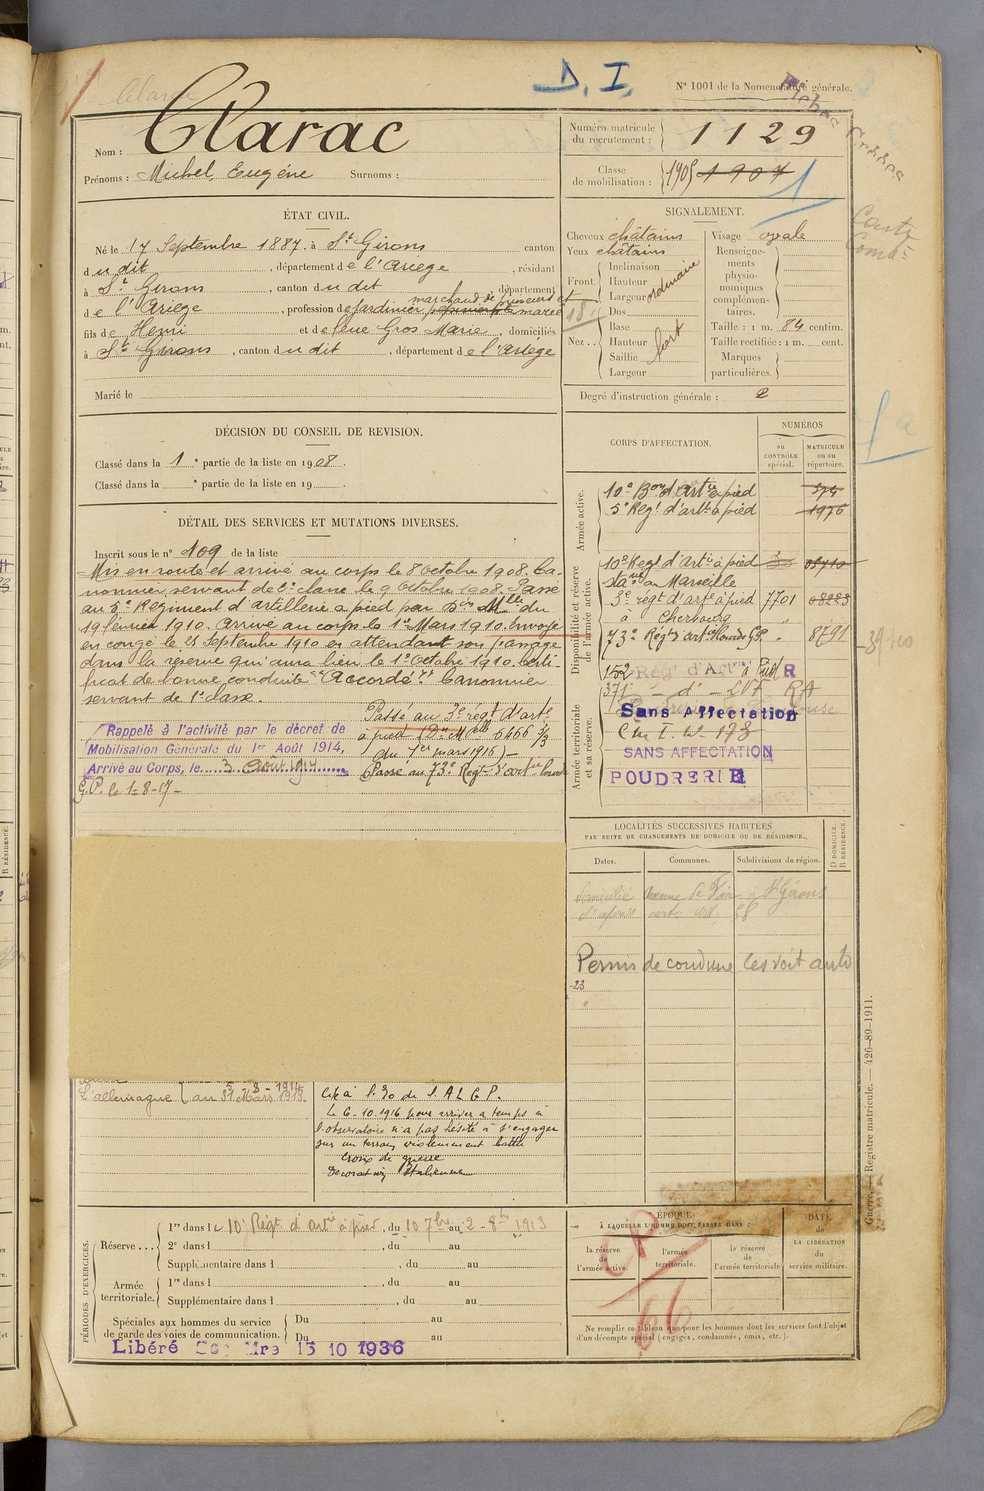 Clarac
D. I.
N° 1001 de la Nomenclature générale.
Nom : Clarac
Prénoms : Michel Eugène Surnoms :
Numéro matricule du recrutement : 1129
Classe de mobilisation : 1905 1907
ÉTAT CIVIL.
Né le 17 Septembre 1887, à St Girons canton
du dit, département de l'Ariège, résidant
à St Girons, canton du dit, département
de l'Ariège, profession de jardinier marchand de primeurs et
fils de Henri et de feue Gros Marie, domiciliés
à St Girons, canton du dit, département de l'Ariège
Marié le
SIGNALEMENT.
Cheveux châtains
Yeux châtains
Front Inclinaison Hauteur Largeur ordinaire
Nez Dos Base Hauteur Saillie Largeur fort
Visage ovale
Renseignements physionomiques complémentaires.
Taille : 1 m. 84 centim.
Taille rectifiée : 1 m. cent.
Marques particulières.
Degré d'instruction générale : 2
DÉCISION DU CONSEIL DE REVISION.
Classé dans la 1e partie de la liste en 1908.
Classé dans la e partie de la liste en 19
DÉTAIL DES SERVICES ET MUTATIONS DIVERSES.
Inscrit sous le n° 109 de la liste
Mis en route et arrivé au corps le 8 octobre 1908. Ca-
nonnier servant de 2e classe le 9 octobre 1908. Passé
au 5e Régiment d'artillerie à pied par Don Mlle du
19 février 1910. Arrivé au corps le 1er Mars 1910. Envoyé
en congé le 25 Septembre 1910 en attendant son passage
dans la réserve qui aura lieu le 1er octobre 1910. Certi-
ficat de bonne conduite "Accordé". Canonnier
servant de 1e classe.
Rappelé à l'activité par le décret de
Mobilisation Générale du 1er Août 1914,
Arrivé au Corps, le 3 Août 1914
Passé au 3e régt d'arte
à pied (Don Mlle 6466 3/3
du 1er mars 1916) —
Passé au 73e Régt d'art lourde
G.P. le 1-8-17 —
L'allemagne au 31 Mars 1919.
Cité à l'
Le 6-10-1916 pour arriver à temps à
l'observatoire n'a pas hésité à s'engager
sur un terrain violemment battu
Croix de guerre
Décoration Italienne
CORPS D'AFFECTATION.
NUMÉROS
au contrôle spécial.
matricule ou au répertoire.
Armée active.
10e Bon d'Artie à pied
5e Régt d'artie à pied 1976
Disponibilité et réserve de l'armée active.
10e Regt d'Artie à pied
à Marseille
3e régt d'arte à pied 7701 08223
à Cherbourg
73e Régt arte lourde G.P. 8791
Armée territoriale et sa réserve.
152 Régt d'Artie à Pied R
371 — d° — R A
Sans Affectation
SANS AFFECTATION
POUDRERIE
LOCALITÉS SUCCESSIVES HABITÉES
PAR SUITE DE CHANGEMENTS DE DOMICILE OU DE RÉSIDENCE.
Dates. Communes. Subdivisions de région. D DOMICILE. R RÉSIDENCE.
Permis de conduire les voit auto
-23
PÉRIODES D'EXERCICES.
Réserve ... 1re dans le 10e Régt d'artie à pied, du 10 7bre au 2-8bre 1913
2e dans l , du au
Supplémentaire dans l , du au
Armée territoriale. 1re dans l , du au
Supplémentaire dans l , du au
Spéciales aux hommes du service de garde des voies de communication. Du au
Du au
Libéré 15 10 1936
ÉPOQUE
À LAQUELLE L'HOMME DOIT PASSER DANS :
la réserve de l'armée active.
l'armée territoriale.
la réserve de l'armée territoriale
DATE de LA LIBÉRATION du service militaire.
Ne remplir ce tableau que pour les hommes dont les services font l'objet
d'un décompte spécial (engagés, condamnés, omis, etc.).
66
Guerre. — Registre matricule. — 426-89-1911.